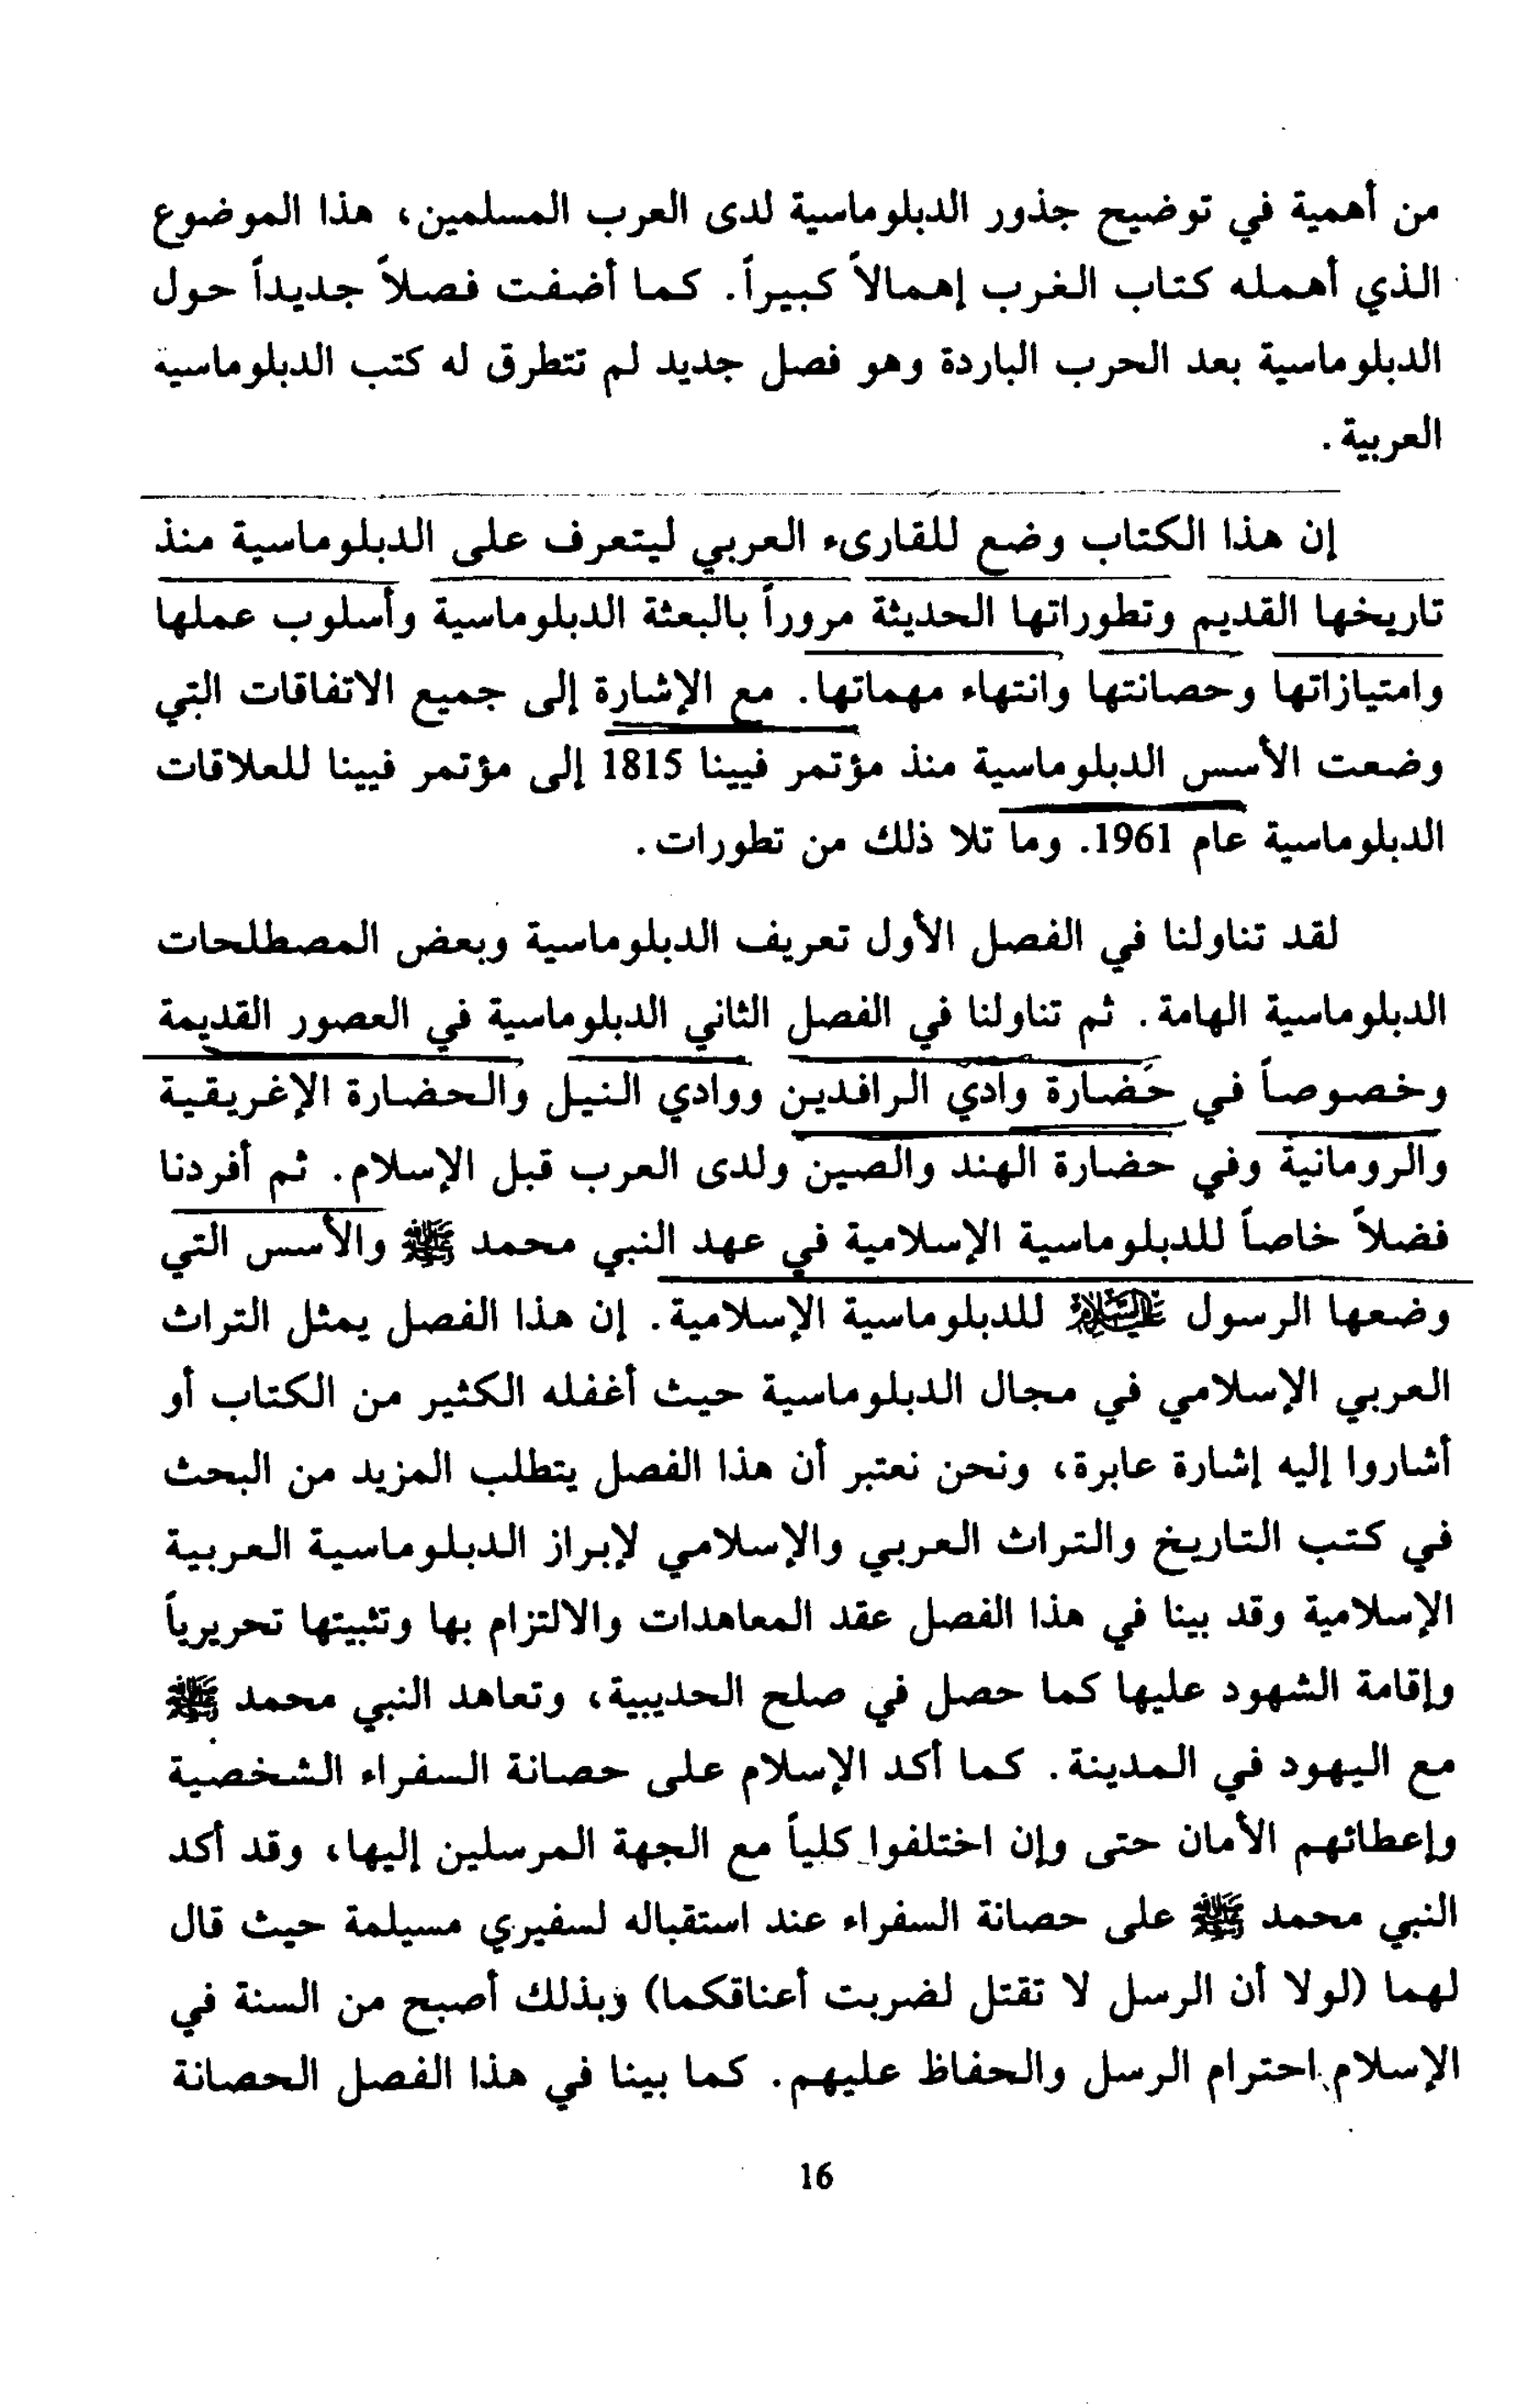 من أهمية في توضيح جذور الدبلوماسية لدى العرب المسلمين، هذا الموضوع
الذي أهمله كتاب الغرب إهمالاً كبيراً. كما أضفت فصلاً جديداً حول
الدبلوماسية بعد الحرب الباردة وهو فصل جديد لم تتطرق له كتب الدبلوماسية
العربية.
إن هذا الكتاب وضع للقارىء العربي ليتعرف على الدبلوماسية منذ
تاريخها القديم وتطوراتها الحديثة مروراً بالبعثة الدبلوماسية وأسلوب عملها
وامتيازاتها وحصانتها وانتهاء مهماتها. مع الإشارة إلى جميع الاتفاقات التي
وضعت الأسس الدبلوماسية منذ مؤتمر فيينا 1815 إلى مؤتمر فيينا للعلاقات
الدبلوماسية عام 1961. وما تلا ذلك من تطورات.
لقد تناولنا في الفصل الأول تعريف الدبلوماسية وبعض المصطلحات
الدبلوماسية الهامة. ثم تناولنا في الفصل الثاني الدبلوماسية في العصور القديمة
وخصوصاً في حضارة وادي الرافدين ووادي النيل والحضارة الإغريقية
والرومانية وفي حضارة الهند والصين ولدى العرب قبل الإسلام. ثم أفردنا
فصلاً خاصاً للدبلوماسية الإسلامية في عهد النبي محمد ﷺ والأسس التي
وضعها الرسول عليه السلام للدبلوماسية الإسلامية. إن هذا الفصل يمثل التراث
العربي الإسلامي في مجال الدبلوماسية حيث أغفله الكثير من الكتاب أو
أشاروا إليه إشارة عابرة، ونحن نعتبر أن هذا الفصل يتطلب المزيد من البحث
في كتب التاريخ والتراث العربي والإسلامي لإبراز الدبلوماسية العربية
الإسلامية وقد بينا في هذا الفصل عقد المعاهدات والالتزام بها وتثبيتها تحريرياً
وإقامة الشهود عليها كما حصل في صلح الحديبية، وتعاهد النبي محمد ﷺ
مع اليهود في المدينة. كما أكد الإسلام على حصانة السفراء الشخصية
وإعطائهم الأمان حتى وإن اختلفوا كلياً مع الجهة المرسلين إليها، وقد أكد
النبي محمد ﷺ على حصانة السفراء عند استقباله لسفيري مسيلمة حيث قال
لهما (لولا أن الرسل لا تقتل لضربت أعناقكما) وبذلك أصبح من السنة في
الإسلام احترام الرسل والحفاظ عليهم. كما بينا في هذا الفصل الحصانة
16